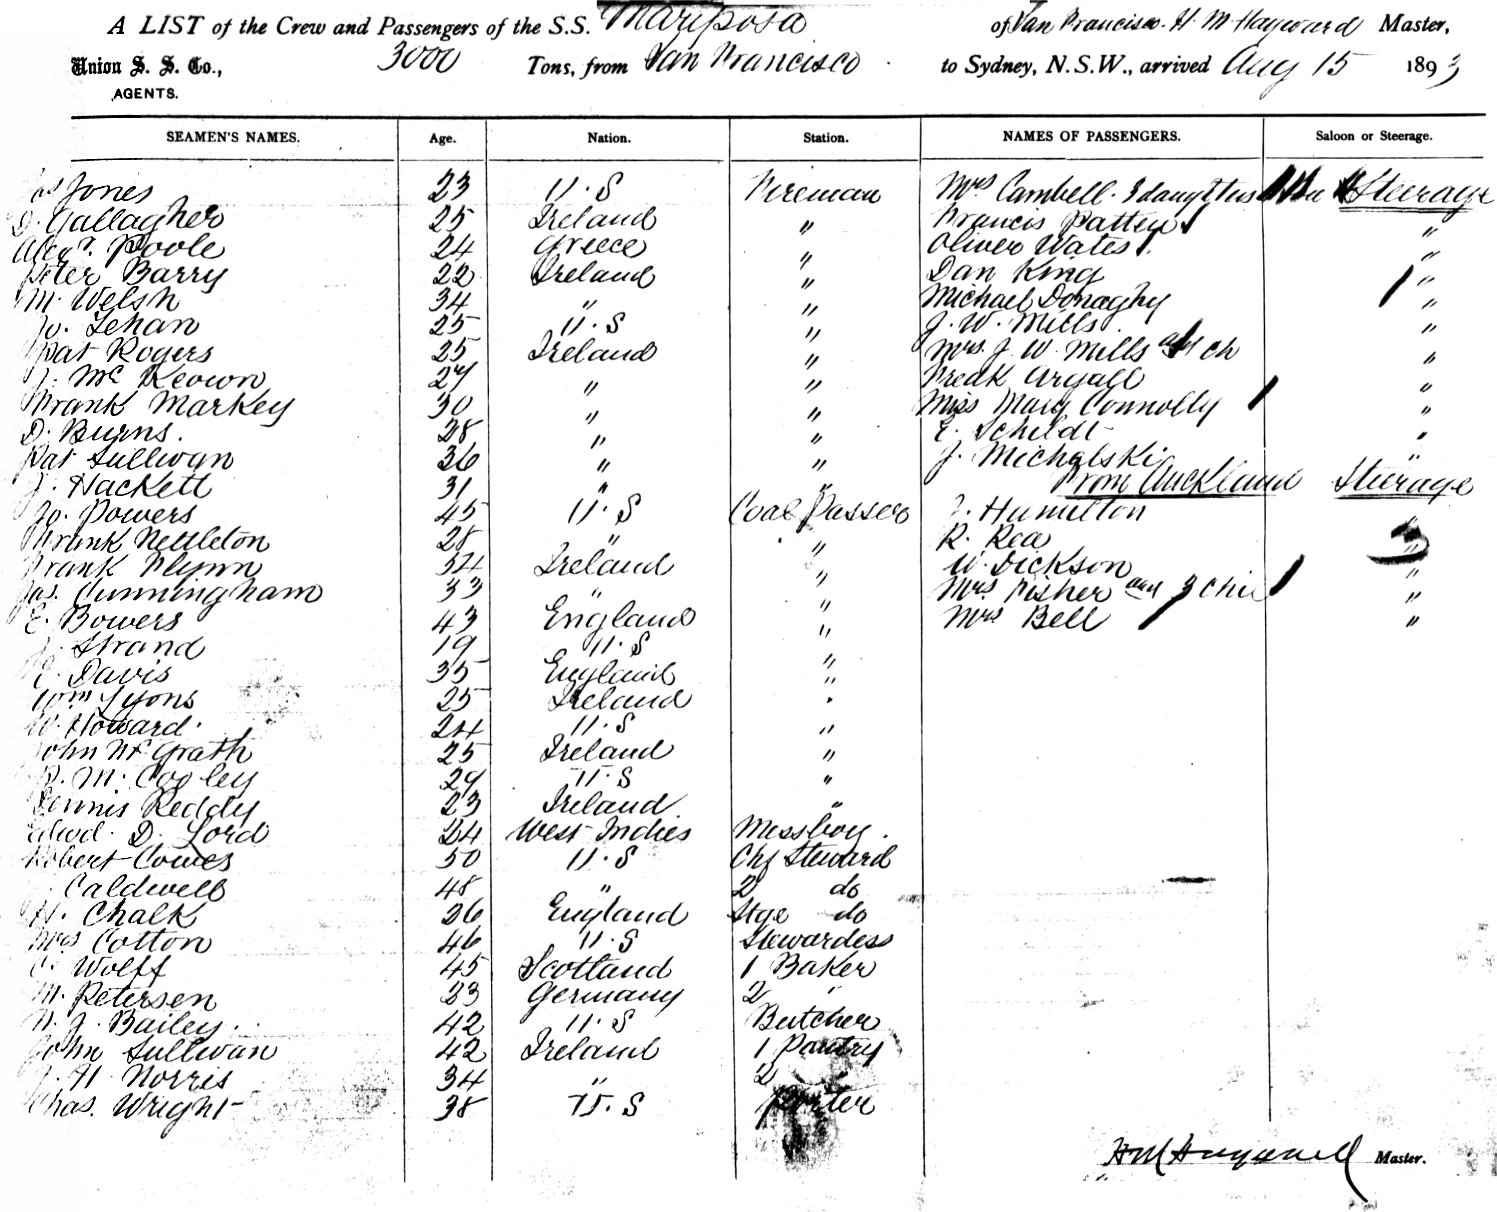 A LIST of the Crew and Passengers of the S.S. Mariposa of San Francisco. H. M. Hayward Master,
Union S. S. Co., 3000 Tons, from San Francisco to Sydney, N.S.W., arrived Aug 15 1893
AGENTS.
SEAMEN'S NAMES. Age. Nation. Station. NAMES OF PASSENGERS. Saloon or Steerage.
Jones 23 U.S Fireman Mrs Cambell. 3 daughters Steerage
D. Gallagher 25 Ireland " Francis Patten "
Alexr. Poole 24 Greece " Oliver Wates "
Peter Barry 22 Ireland " Dan King "
M. Welsh 34 " " Michael Donaghy "
Jo. Lehan 25 U.S " J. W. Mills "
Pat Rogers 25 Ireland " Mrs. J. W. Mills and ch "
J. Mc Keown 27 " " Fredk Argall "
Frank Markey 30 " " Miss Mary Connolly "
D. Burns. 28 " " E. Schildt "
Pat Sullivan 36 " " J. Michalski "
J. Hackett 31 " " From Auckland Steerage
Jo. Powers 45 U.S Coal Passer J. Hamilton "
Frank Nettleton 28 " " R. Rea "
Frank Flynn 34 Ireland " W. Dickson "
Jas. Cunningham 33 " " Mrs Fisher and 3 chil "
E. Bowers 43 England " Mrs Bell "
J. Strand 19 U.S "
E. Davis 35 England "
Wm Lyons 25 Ireland "
W. Howard. 24 U.S "
John McGrath 25 Ireland "
M. Cooley 29 U.S "
Dennis Reddy 23 Ireland "
Edwd. D. Lord 24 West Indies Messboy.
Robert Cowes 50 U.S Chf Steward
Caldwell 48 " 2 do
H. Chalk 26 England Stge do
Mrs Cotton 46 U.S Stewardess
C. Wolff 45 Scotland 1 Baker
M. Petersen 23 Germany 2 "
W. J. Bailey. 42 U.S Butcher
John Sullivan 42 Ireland 1 Pantry
J. H. Norris 34 " 2
Chas. Wright 38 U.S Porter
HM Hayward Master.